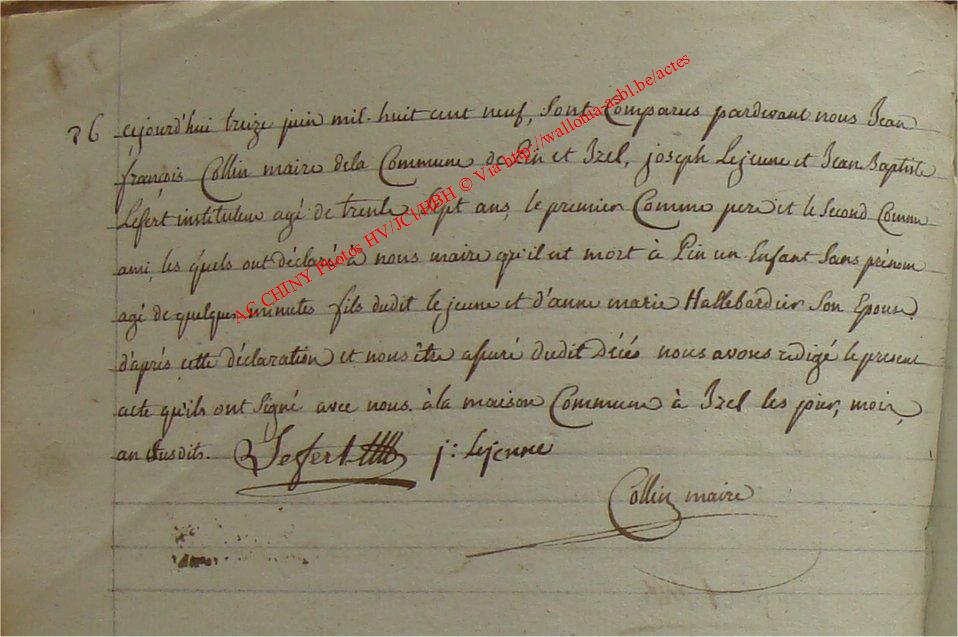 36 cejourd'hui treize juin mil-huit cent neuf, sont comparus pardevant nous Jean
françois Collin maire dela Commune de Pin et Izel, joseph Lejeune et Jean Baptiste
Lefert instituteur agé de trente sept ans, le premier Comme pere et le second Comme
ami, les quels ont déclaré à nous maire qu'il est mort à Pin un Enfant sans prénom
agé de quelques minutes fils dudit lejeune et d'anne marie Hallebardier son Epouse.
d'après cette déclaration et nous être assuré dudit Décés nous avons redigé le present
acte qu'ils ont signé avec nous. à la maison Commune à Izel les jour, mois,
an susdits. Lefert j: Lejeune
Collin maire
AC CHINY Photos HV/JCl/HBH © Via http://wallonia-asbl.be/actes